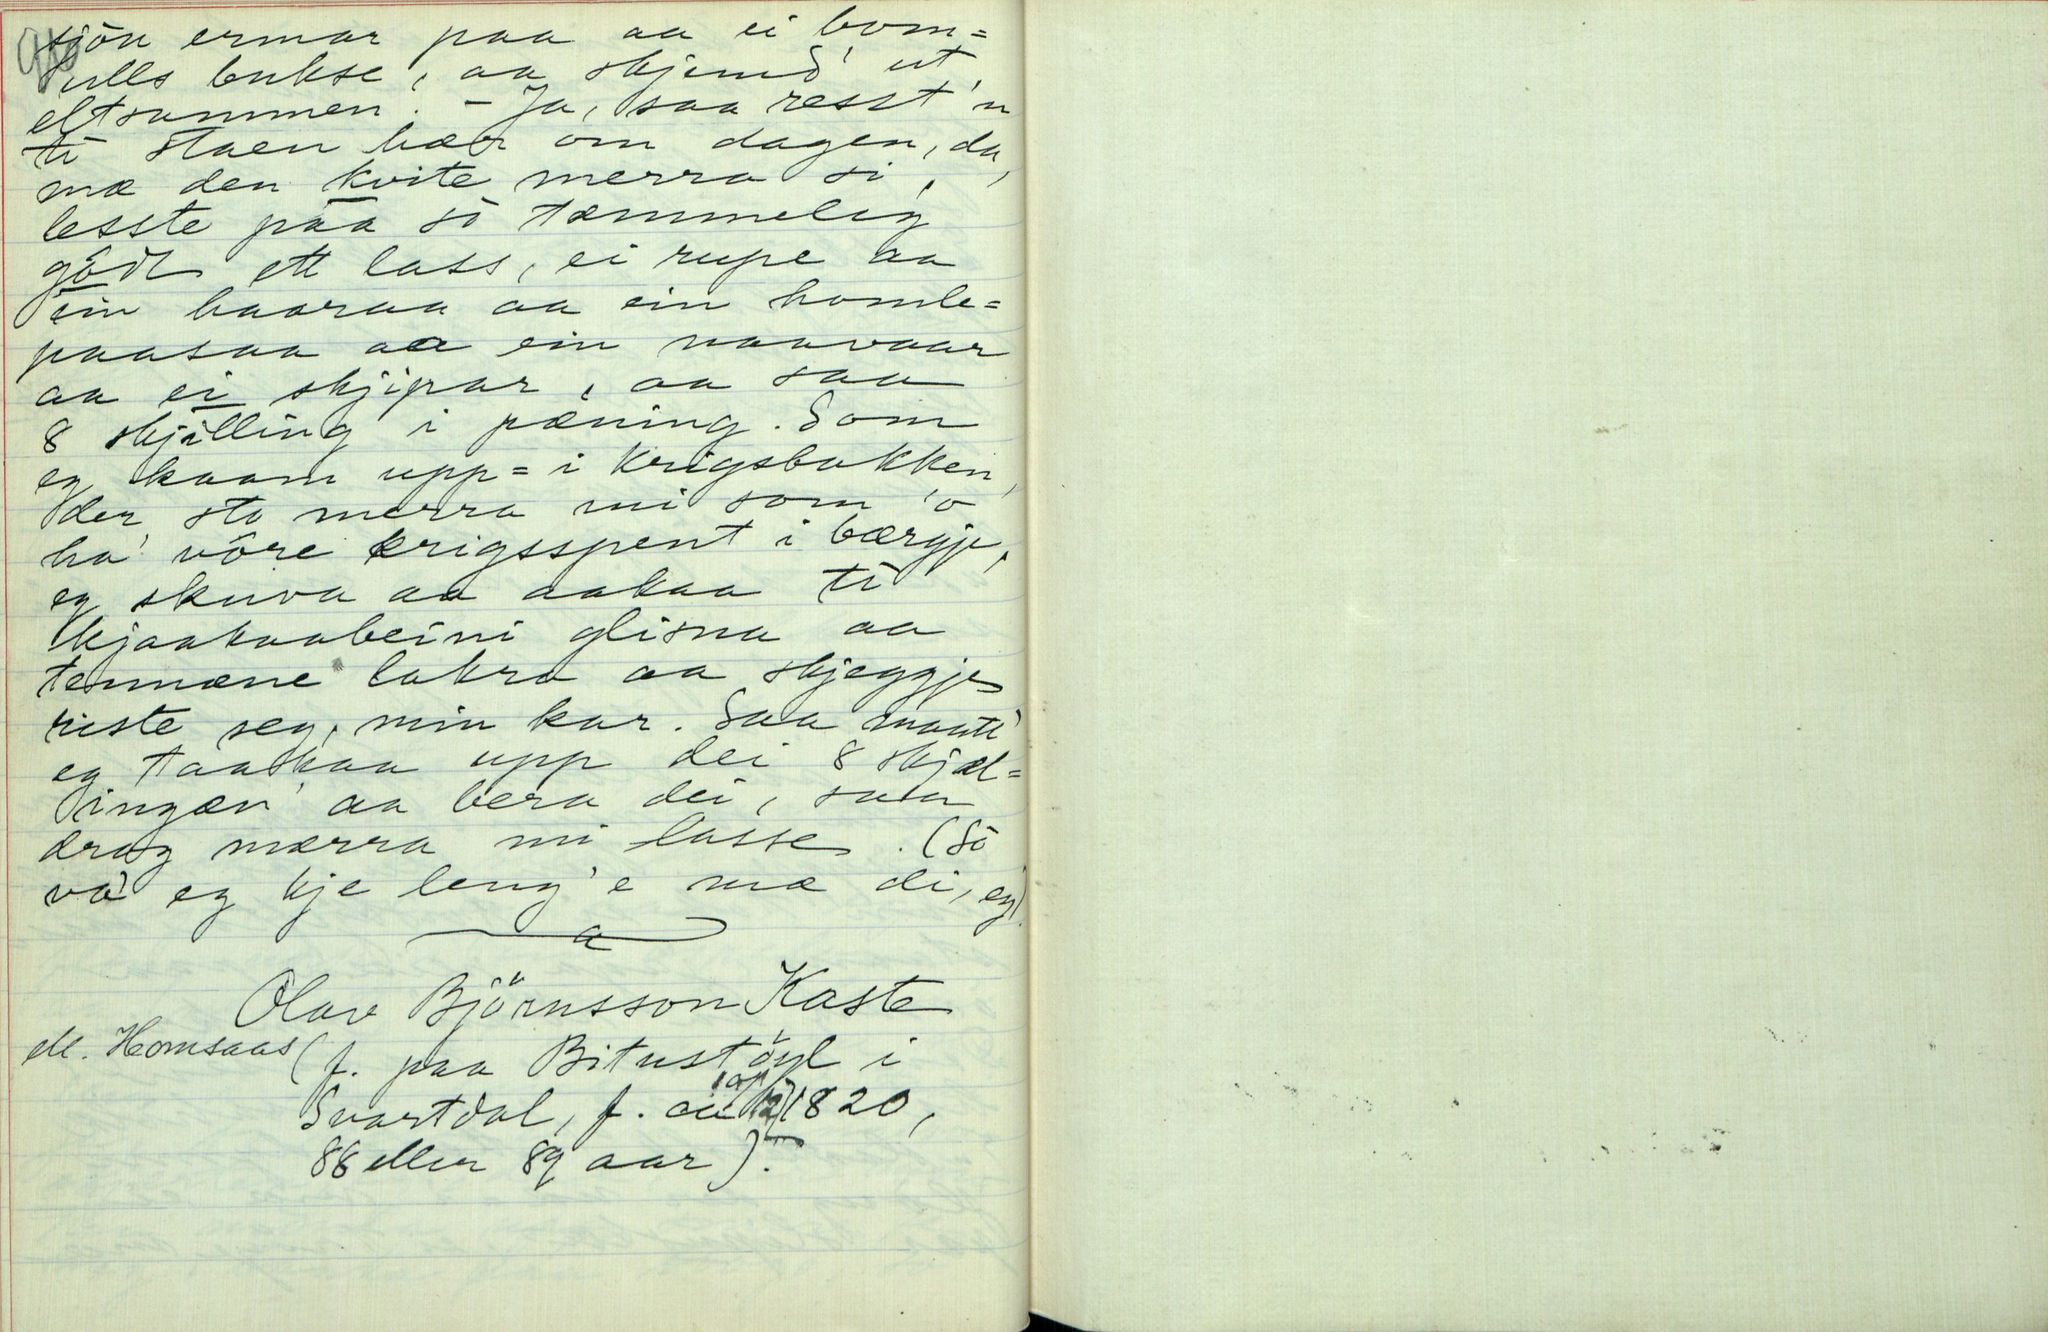 sjön ermar paa aa ei bom=
ulls bukse, aa skjemd' ut
eltsammen. – Ja, saa resst'n
ti staen hær om dagen, da,
mæ den kvite merra si,
lesste paa sò tæmmelig
gòdt ett lass, ei rupe aa
ein haaraa aa ein homle=
paasaa aa ein naavaar
aa ei skjipar, aa saa
8 skjilling i pæning. Som
eg kaam upp=i Krigsbakken,
der sto merra mi som 'o
ha' vòre krigsspent i bærgje,
eg skuva aa aakaa ti
kjaakaabeini glisna aa
tennæne lakra aa skjeggje
riste seg, min kar. Saa maatt'
eg taaskaa upp dei 8 skjæl=
ingæn' aa bera dei, saa
drog mærra mi lasse. (Sò
va' eg kje leng'e mæ di, eg)
Olav Björnsson Kaste
(f. paa Bitustöyl i
Svartdal, f. 1820,
88 eller 89 aar).